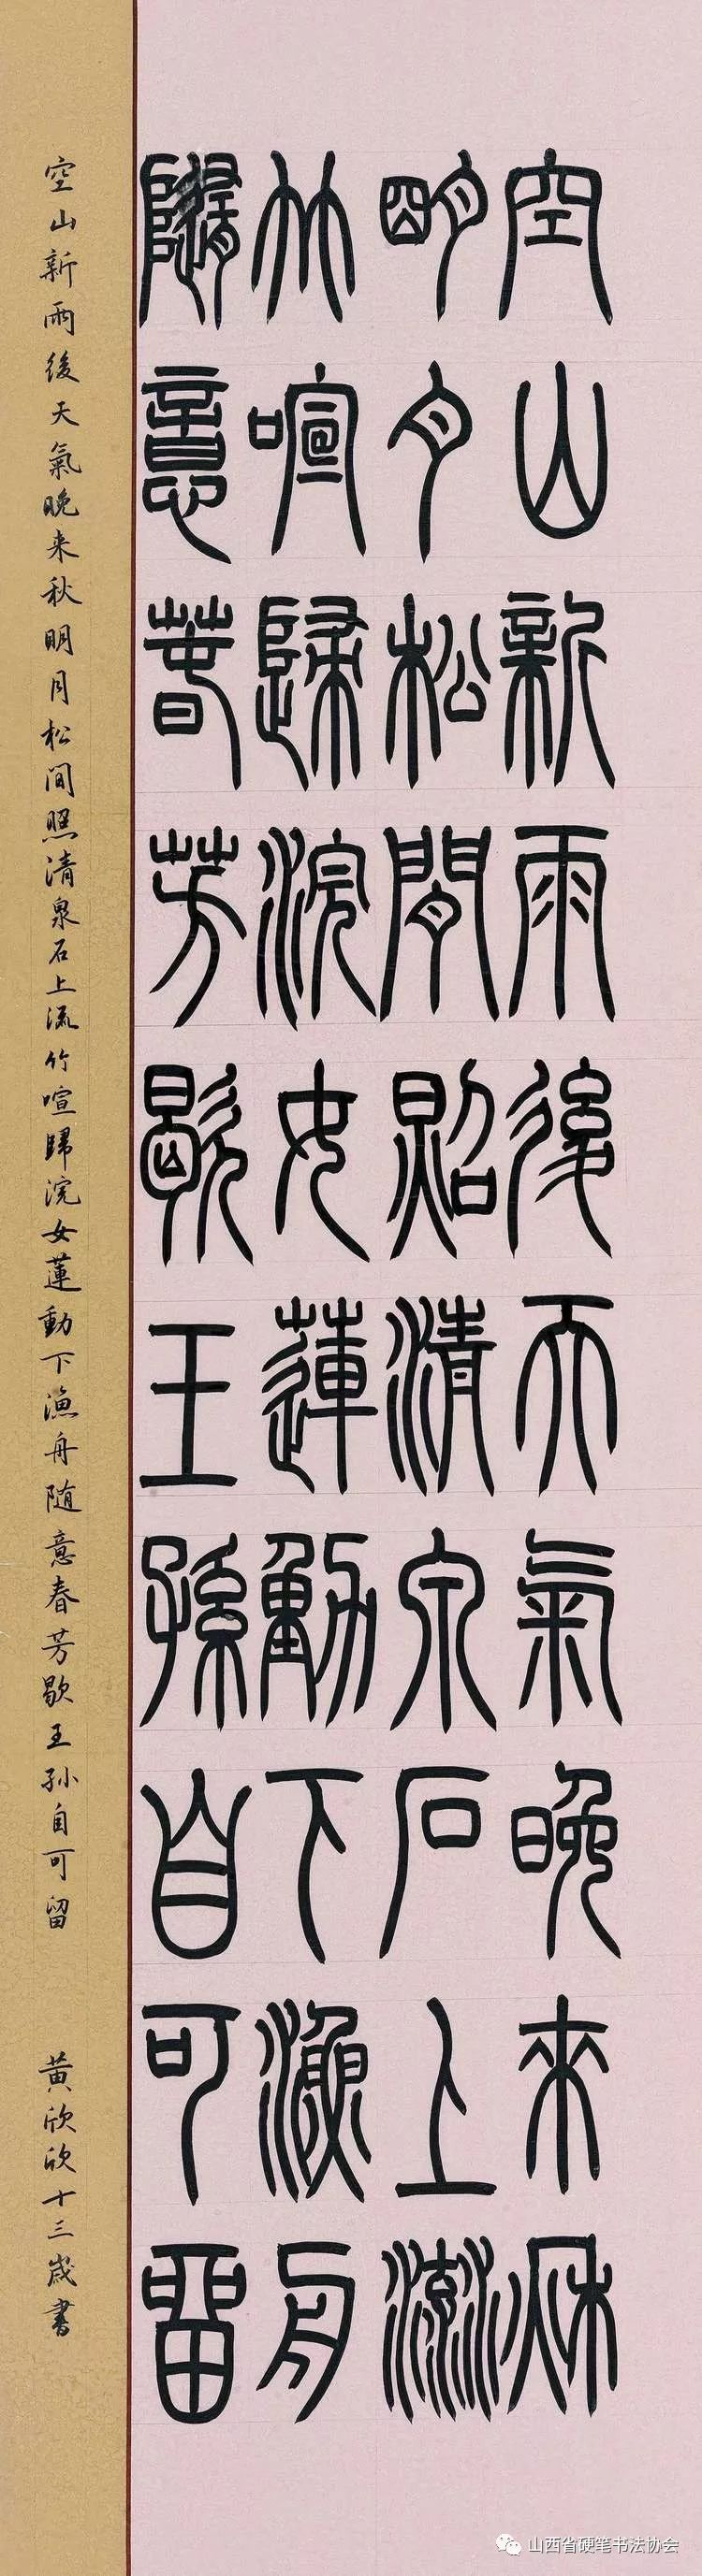 空山新雨後天氣晚來秋
明月松間照清泉石上流
竹喧歸浣女蓮動下漁舟
隨意春芳歇王孫自可留
空山新雨後天氣晚来秋明月松间照清泉石上流竹喧歸浣女蓮動下漁舟随意春芳歇王孙自可留
黄欣欣十三歲書
山西省硬笔书法协会